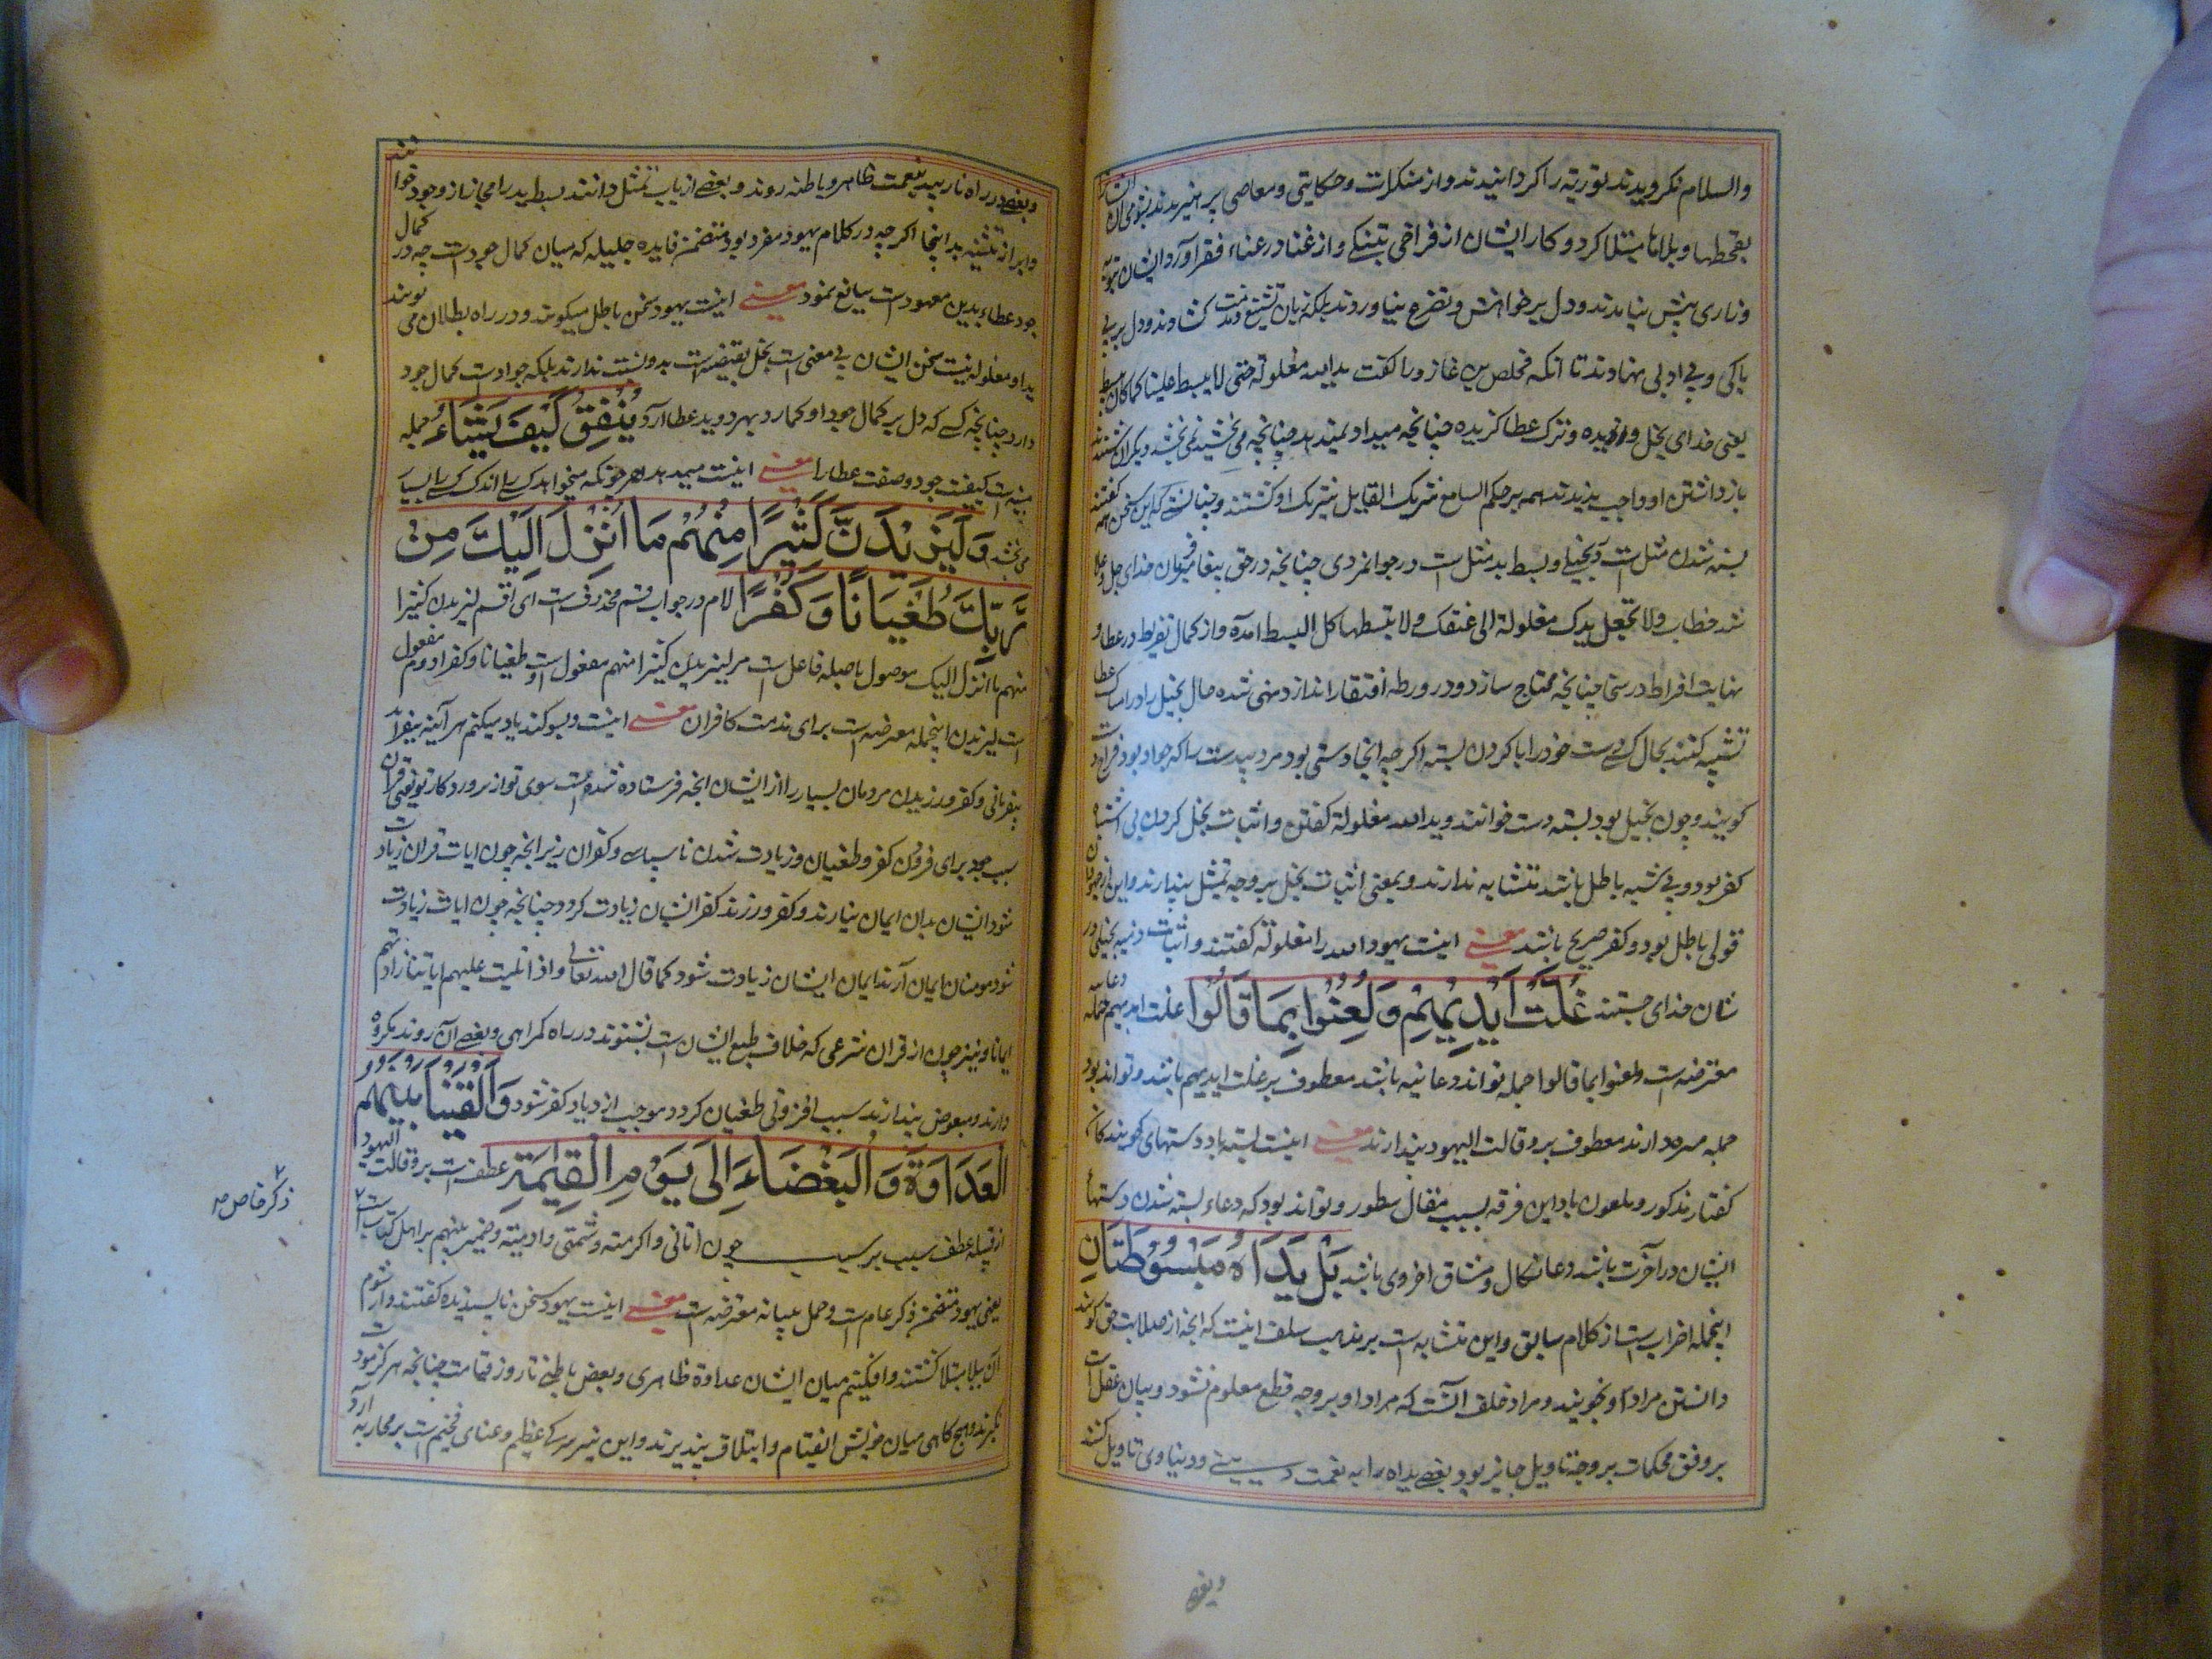 والسلام نکرویدند توریة را کردانیدند و از منکرات و حکایتی و معاصی پرهیز
بقحطها و بلاها مبتلا کرد و کار ایشان از فراخی بتنکی و از غنا در عناء فقر آورد ایشان
وزاری پیش نیامدند و دل بر خواهش و تضرع نیاوردند بلکه زبان تشنیع
باکی و بی ادبی نهادند تا آنکه فنحاص بن عازورا کفت ید الله مغلولة حتی لا یبسط علینا کما کان یبسط
یعنی خدای بخل ورزیده و ترک عطا کزیده چنانچه میداد نمیدهد چنانچه می بخشید نمی بخشد دیکران
بازداشتن او واجب ندیدند همه بر حکم السامع شریک القایل شریک او کشتند و چنانستی که این سخن همه کفتند
بسته شدن مثل است در بخیلی و بسط ید مثل است در جوانمردی چنانچه در حق پیغامبر فرمان خدای جل و علا
شد خطاب ولا تجعل یدک مغلولة الی عنقک ولا تبسطها کل البسط آمده و از کمال تفریط در عطا و
نهایت افراط در سخا چنانچه محتاج سازد و در ورطه افتقار اندازد منهی شده حال بخیل را در امساک عطا
تشبیه کنند بحال کی دست خود را با کردن بسته اکرچه آنجا دستی بود مرد بیدست را که جواد بود فراخ دست
کویند و چون بخیل بود بسته دست خوانند و ید الله مغلولة کفتن و اثبات بخل کردن بی اشتباه
کفر بود و بی شبهه باطل باشد متشابه ندارند و بمعنی اثبات بخل بر وجه تمثیل پندارند و این
قولی باطل بود و کفر صریح باشد معنی اینست یهود الله را مغلولة کفتند و اثبات
شان خدای جستند غُلَّتْ أَيْدِيهِمْ وَلُعِنُوا بِمَا قَالُوا غلت ایدیهم جمله دعائیه
معترضه است ولعنوا بما قالوا جمله تواند دعائیه باشد معطوف بر غلت ایدیهم باشد و تواند بود
جمله دارند معطوف بر وقالت الیهود پندارند معنی اینست بسته باد دستهای کویندکان
کفتار مذکور و ملعون باد این فرقه بسبب مقال مسطور و تواند بود که دعاء بسته شدن دستهاء
ایشان در آخرت باشد و دعا نکال و مشاق اخروی باشد بَلْ يَدَاهُ مَبْسُوطَتَانِ
اینجمله اضراب است از کلام سابق و این متشابه است بر مذهب سلف اینست که آنچه از متشابهات حق کویند
دانستن مراد او نجویند و مراد خلف آنست که مراد او بر وجه قطع معلوم نشود و بیان عقل است
بر وفق محکمات بر وجه تاویل جایز بود و بعضی یداه را به نعمت دینی و دنیاوی تاویل کنند
وبعضی
وبعضی در راه تاویل بنعمت ظاهره و باطنه روند و بعضی از باب تمثیل دانند بسط ید را مجاز از وجود خوانند
وایراد تثنیه ید اینجا اکرچه در کلام یهود مفرد بود متضمن فایده جلیله که بیان کمال جود است چه در کمال
جود عطاء بدین معهود است بیانع نمود معنی اینست یهود سخن باطل میکویند و در راه بطلان می پویند
ید او مغلوله نیست سخن ایشان بی معنی است بخل بقبضه است بدو نسبت ندارند بلکه جواد است کمال جود
دارد چنانچه کسی که دل بر کمال جود او کمارد بهر دو ید عطا آرد يُنْفِقُ كَيْفَ يَشَاءُ جمله
مبینه است کیفیت جود و صفت عطا را معنی اینست میدهد هر چونکه میخواهد کسی را اندک کسی را بسیار
می بخشد وَلَيَزِيدَنَّ كَثِيرًا مِنْهُمْ مَا أُنْزِلَ إِلَيْكَ مِنْ
رَبِّكَ طُغْيَانًا وَكُفْرًا لام در جواب قسم محذوف است ای اقسم لیزیدن کثیرا
منهم ما انزل الیک موصول با صله فاعل است مر لیزیدن کثیرا منهم مفعول است طغیانا و کفرا دوم مفعول
است لیزیدن اینجمله معترضه است برای مذمت کافران معنی اینست و سوکند یاد میکنم هر آینه بیفزاید
بیفرمانی و کفر ورزیدن مردمان بسیار را از ایشان آنچه فرستاده شده است سوی تو از پروردکار تو یعنی قرآن
سبب بود برای فزون کفر و طغیان و زیادت شدن ناسپاسی و کفران زیرا نچه چون ایات قران زیادت
شود ایشان بدان ایمان نیارند و کفر ورزند کفر ایشان زیادت کردد چنانچه چون ایات زیادت
شود مومنان ایمان آرند ایمان ایشان زیادت شود کما قال الله تعالی واذا تلیت علیهم ایاتنا زادتهم
ایمانا و نیز چون از قران شرعی که خلاف طبع ایشان است بشنوند در راه کمراهی و بغض آن روند مکروه
دارند و مبغوض پندارند سبب افزونی طغیان کردد موجب ازدیاد کفر شود وَأَلْقَيْنَا بَيْنَهُمُ
الْعَدَاوَةَ وَالْبَغْضَاءَ إِلَى يَوْمِ الْقِيٰمَةِ عطف است بر وقالت الیهود
از قبیله عطف سبب بر سبب چون اتانی و اکرمته و شتمنی و ادبته و ضمیر بینهم بر اهل کتاب است
ذکر خاص
یعنی یهود متضمن ذکر عام است و جمل میانه معترضه است معنی اینست یهود سخن ناپسندیده کفتند و از شوم
آن ببلا مبتلا کشتند و افکندیم میان ایشان عداوة ظاهری و بغض باطنی تا روز قیامت چنانچه هرکز مودت
نکیرند و هیچ کاهی میان خویش التیام و ایتلاف نپذیرند و این نیز عظیم و عنای فخیم است بر محاربه آرد